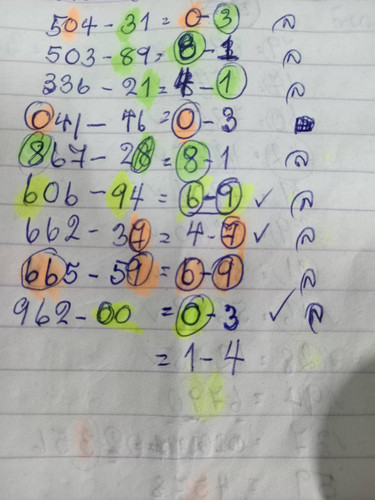 504 - 31 = 0 - 3 ล
503 - 89 = 8 - 1 ล
336 - 21 = 4 - 1 ล
041 - 46 = 0 - 3
867 - 28 = 8 - 1 ล
606 - 94 = 6 - 9 ✓ ล
662 - 37 = 4 - 7 ✓ ล
665 - 59 = 6 - 9 ล
962 - 00 = 0 - 3 ✓ ล
= 1 - 4